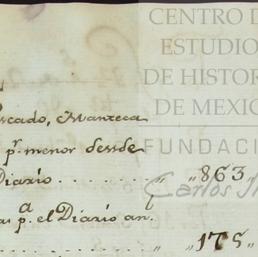 CENTRO D
ESTUDIO
DE HISTOR
DE MEXIC
FUNDACI
Carlos
scado, Manteca
pr. menor desde
Diario . . . . . . . . . " " 863 "
a p. el Diario an.
. . . . . . . . . . " " 175 "